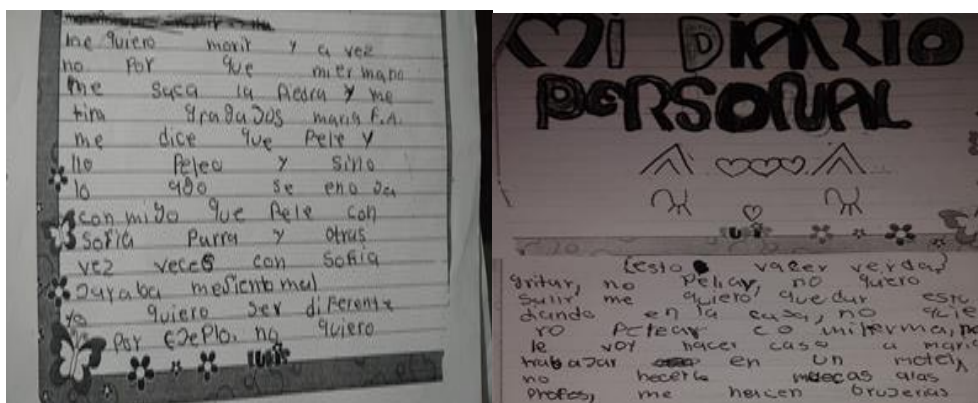 me quiero morir y a vez
no por que miermano
me saca la piedra y me
tira gragados maria F.A.
me dice que Pele y
llo Peleo y sino
lo ago se eno Ja
con migo que Pele con
Sofia Parra y otras
vez veces con Sofia
Jaraba mesiento mal
yo quiero ser diferente
Por EJePlo. no quiero
MI DIARIO
PERSONAL
(esto vaser verdad)
gritar, no Peliar, no quero
Salir me quiero quedar estu
diando en la casa, no quie
ro Pelear co mi erma, no
le voy hacer caso a maria
trabaJar en un motel,
no hecerle muecas alas
Profes, me hascen bruJerias